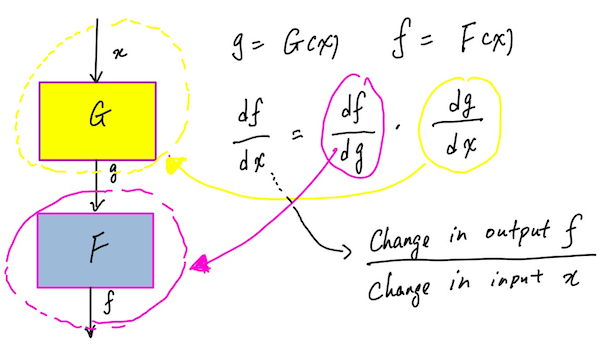 x
G
g
F
f
g = G(x) f = F(x)
df/dx = df/dg · dg/dx
Change in output f
Change in input x